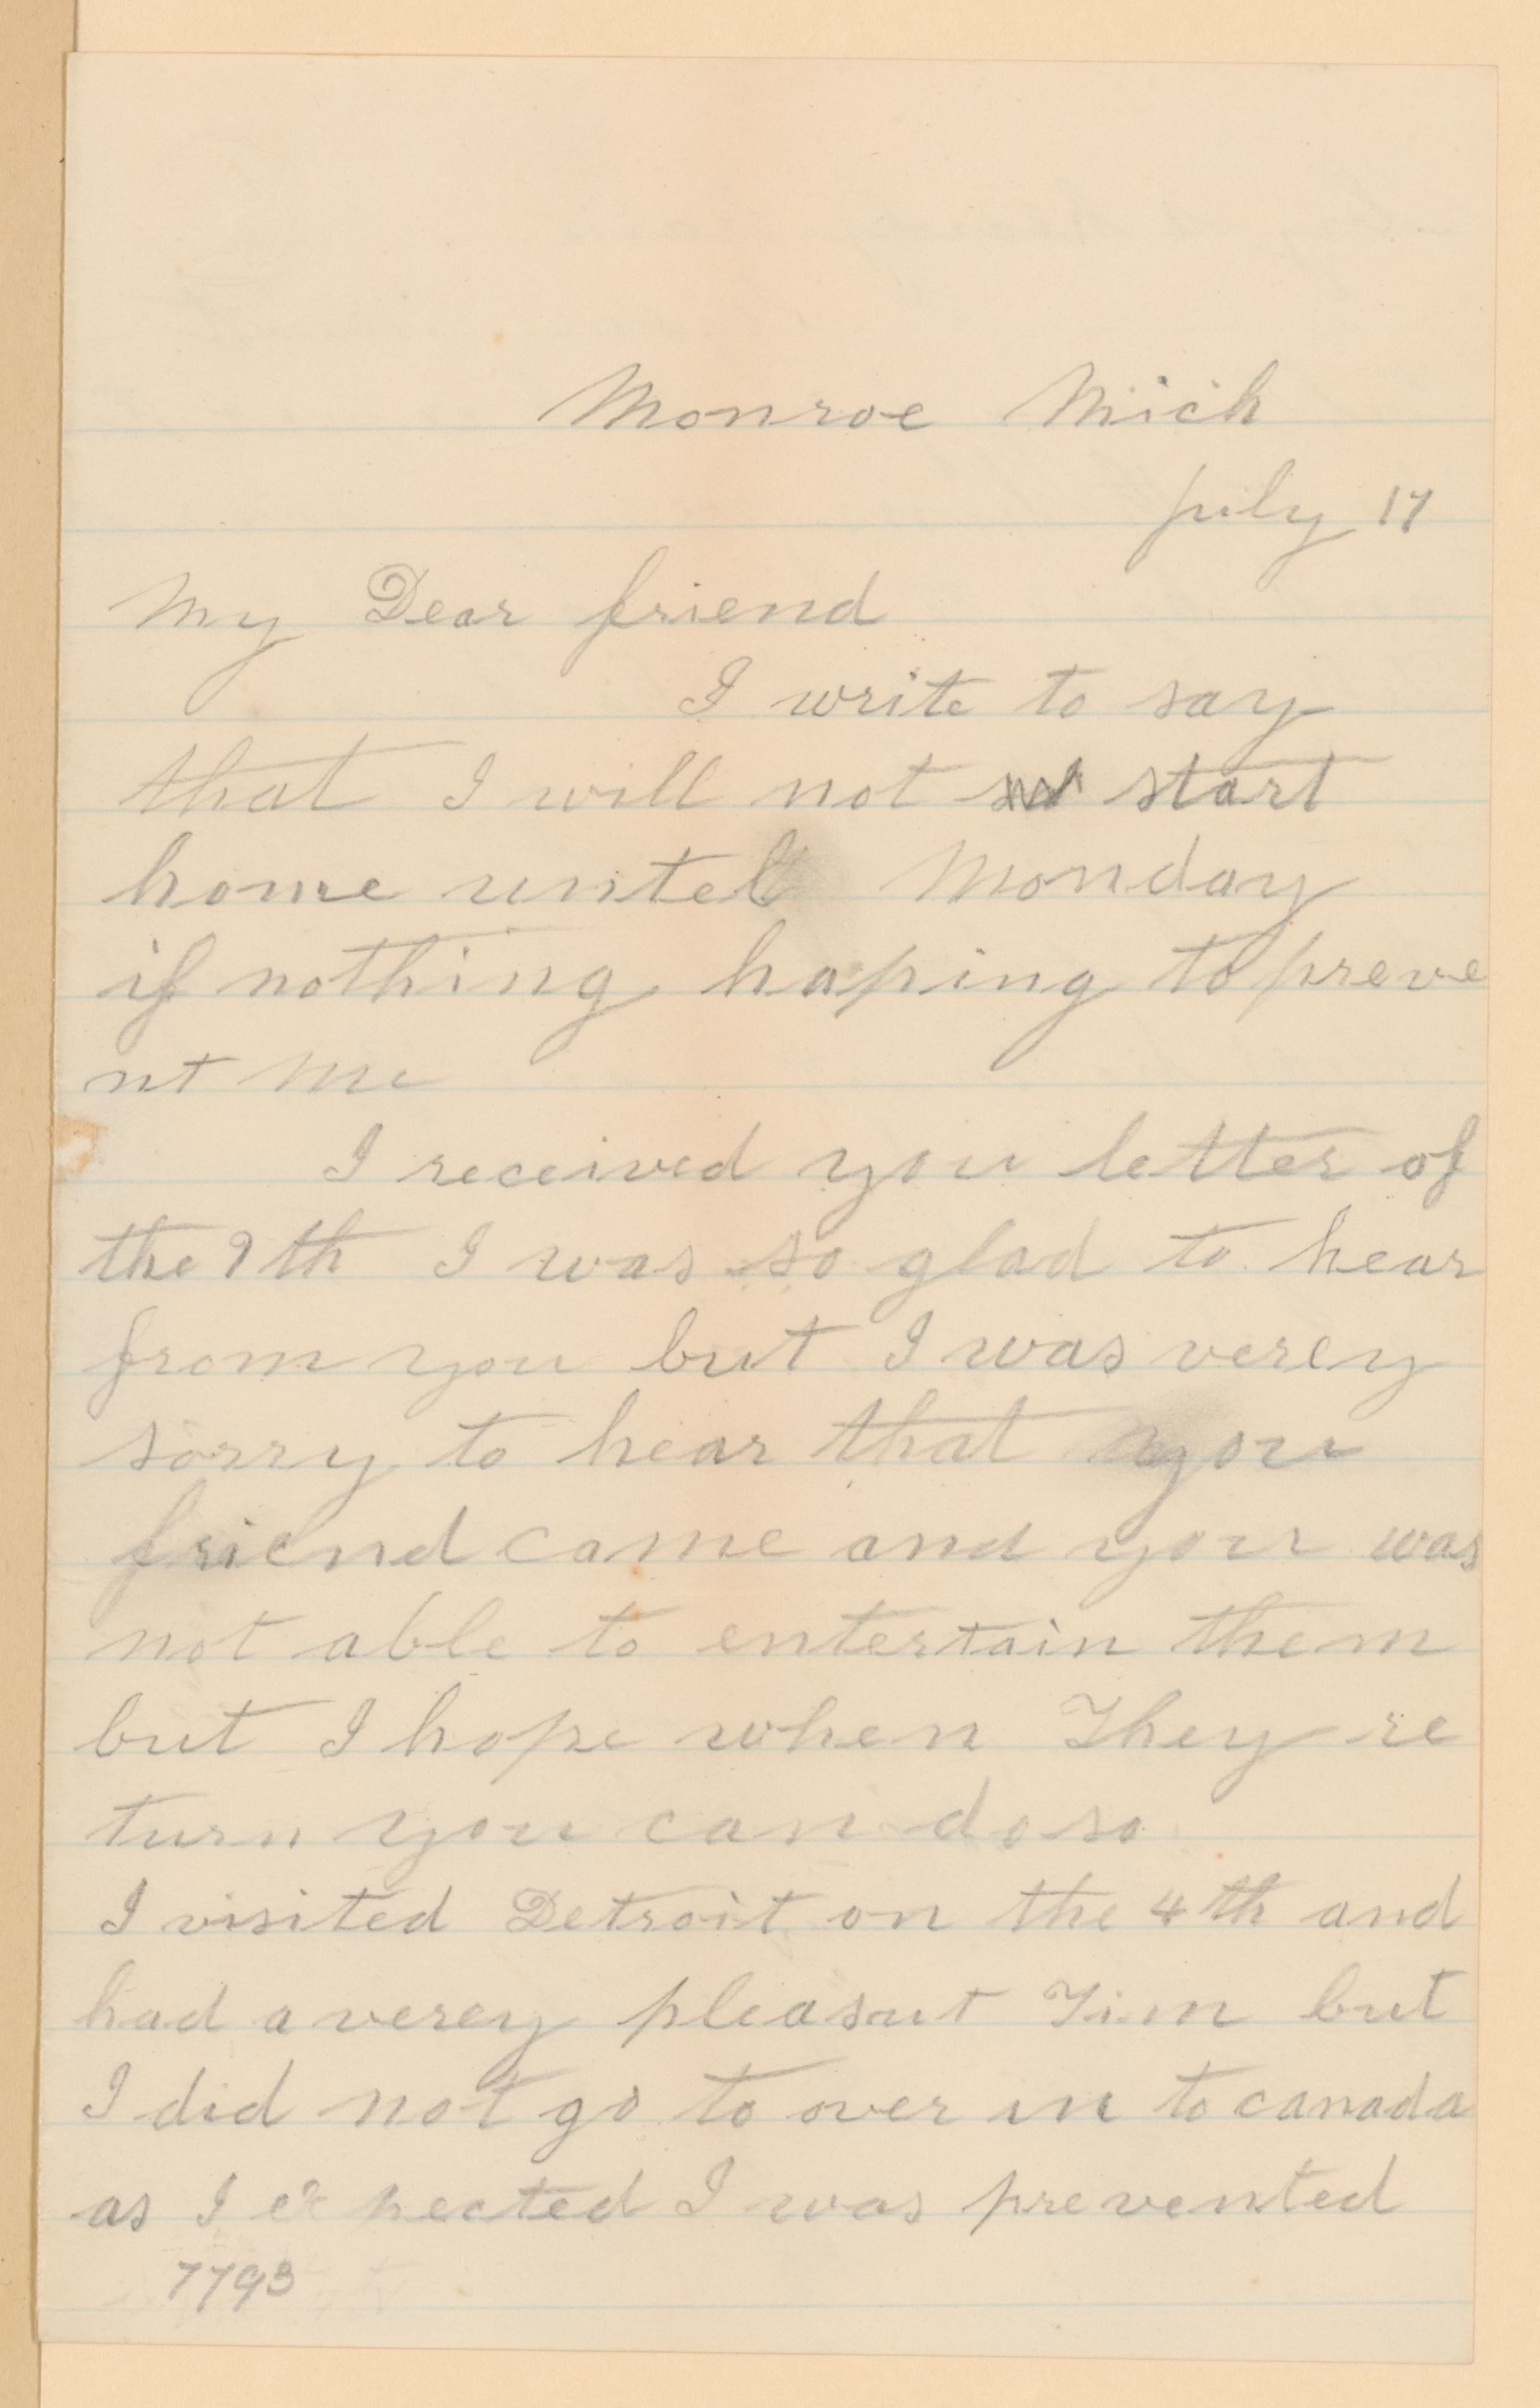 Monroe Mich
july 17
My Dear friend
I write to say
that I will not start
home untel Monday
if nothing haping to preve
nt me
I received you letter of
the 9th I was so glad to hear
from you but I was verey
sorry to hear that you
friend came and your was
not able to entertain them
but I hope when They re
turn you can do so
I visited Detroit on the 4th and
had a verey pleasnt Tim but
I did not go to over in to canada
as I expected I was prevented
7793